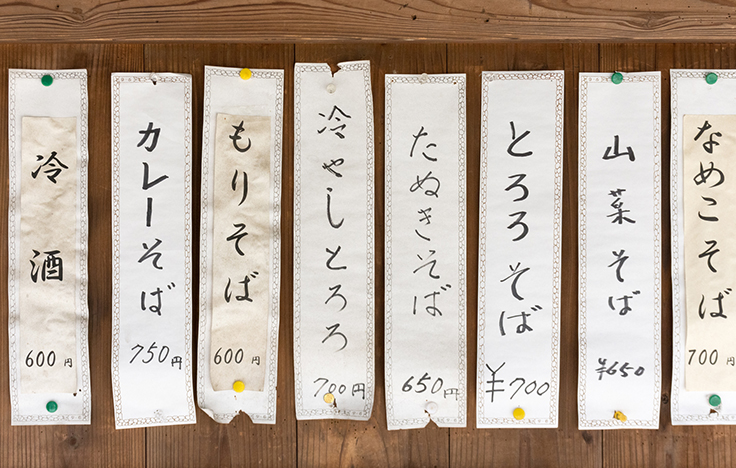 なめこそば
700円
山菜そば
¥650
とろろそば
¥700
たぬきそば
650円
冷やしとろろ
700円
もりそば
600円
カレーそば
750円
冷酒
600円